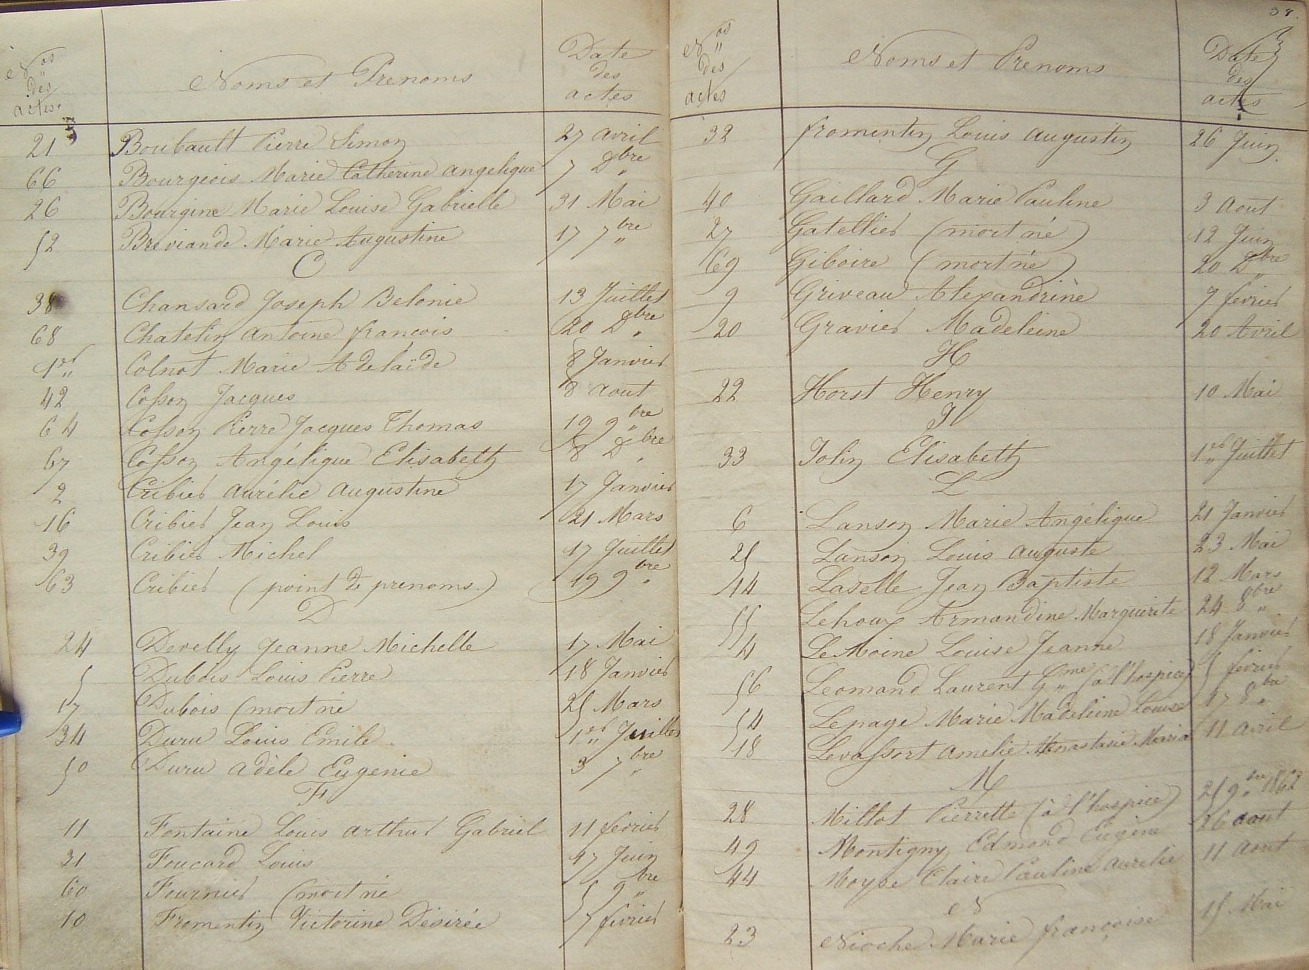 Nos des actes Noms et Prenoms Date des actes
21 Boubault Pierre Simon 27 avril
66 Bourgeois Marie Catherine angelique 7 Dbre
26 Bourgine Marie Louise Gabrielle 31 Mai
52 Breviande Marie Augustine 17 7bre
C
38 Chansard Joseph Belonie 13 Juillet
68 Chatelin antoine françois 20 Dbre
1er Colnot Marie Adelaïde 8 Janvier
42 Cosson Jacques 8 aout
64 Cosson Pierre Jacques Thomas 19 9bre
67 Cosson Angélique Elisabeth 8 Dbre
2 Cribier aurélie augustine 17 Janvier
16 Cribier Jean Louis 21 Mars
39 Cribier Michel 17 Juillet
63 Cribier (point de prenoms.) 19 9bre
D
24 Devilly Jeanne Michelle 17 Mai
5 Dubois Louis Pierre 18 Janvier
17 Dubois (mort né 25 Mars
34 Duru Louis Emile 1er Juillet
50 Duru adèle Eugenie 3 7bre
F
11 Fontaine Louis arthur Gabriel 11 fevrier
31 Foucard Louis 17 Juin
60 Fournier (mort né 5 9bre
10 Fromentin Victorine Désirée 7 fevrier
38
Nos des actes Noms et Prenoms Date des actes
32 fromentin Louis augustin 26 Juin
G
40 Gaillard Marie Pauline 3 aout
27 Gatellier (mort né) 12 Juin
69 Giboire (mort né) 20 Dbre
9 Griveau Alexandrine 7 fevrier
20 Gravier Madeleine 20 Avril
H
22 Horst Henry 10 Mai
J
33 Jolin Elisabeth 1er Juillet
L
6 Lanson Marie Angélique 21 Janvier
25 Lanson Louis auguste 23 Mai
14 Laselle Jean Baptiste 12 Mars
55 Lehoux Armandine Marguerite 24 8bre
4 LeMoine Louise Jeanne 18 Janvier
56 Leomand Laurent Gme (à l'hospice) 5 fevrier
54 Lepage Marie Madeleine Louise 17 8bre
18 Levassort amelie Anastasie Maria 11 avril
M
28 Millot Pierrette (à l'hospice) 25 9bre 1862
49 Montigny Edmond Eugène 26 aout
44 Moyse Claire Pauline aurelie 11 aout
N
23 Nioche Marie françoise 15 Mai